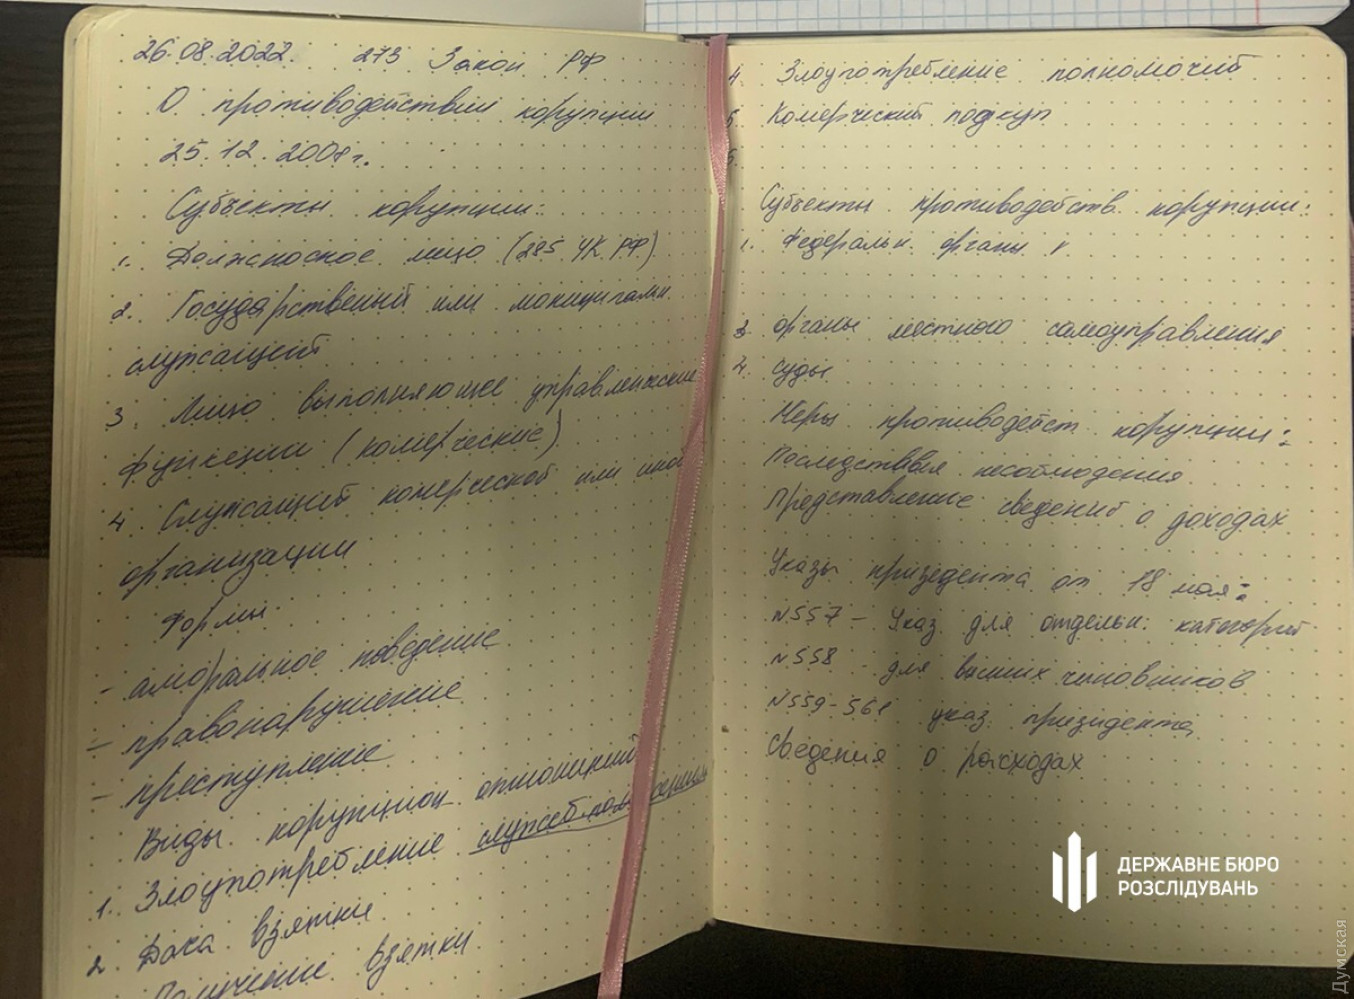 26.08.2022. 273 Закон РФ
О противодействии корупции
25.12.2008г.
Субъекты корупции:
1. Должносное лицо (285 УК РФ)
2. Государственний или мониципальн.
служащий
3. Лицо выполняющее управленские
функции (комерческие)
4. Служащий комерческой или иной
организации
Формы
- аморальное поведение
- правонарушение
- преступление
Виды корупцион. отношений
1. Злоупотребление служеб.
2. Дача взятки
Получение взятки
4. Злоупотребление полномочий
5. Комерческий подкуп
6.
Субъекты противодейств. корупции:
1. Федеральн. органы
3. органы местного самоуправления
4. Суды
Меры противодейст. корупции:
Последствия несоблюдения
Представление сведений о доходах
Указы призедента от 18 мая:
N557 - Указ для отдельн. категорий
N558 - для высших чиновников
N559-561 указ призидента
Сведения о расходах
ДЕРЖАВНЕ БЮРО
РОЗСЛІДУВАНЬ
Думская